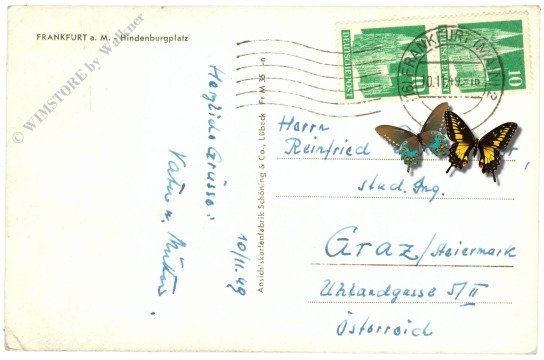 FRANKFURT a. M. - Hindenburgplatz
© WIMSTORE by Walkner
Herzliche Grüsse!
10/11.49
Vater u. Mutter.
Ansichtskartenfabrik Schöning & Co., Lübeck Fr M 35 n
DEUTSCHE POST
10
(16) FRANKFURT (MAIN)
Herrn
Reinfried
stud. Ing.
Graz/Steiermark
Uhlandgasse 5/II
Österreich